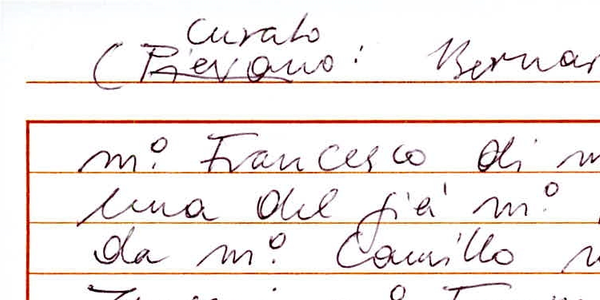 Curato
(Pievano: Bernar
m.º Francesco di m
una del già m.º
da m.º Camillo